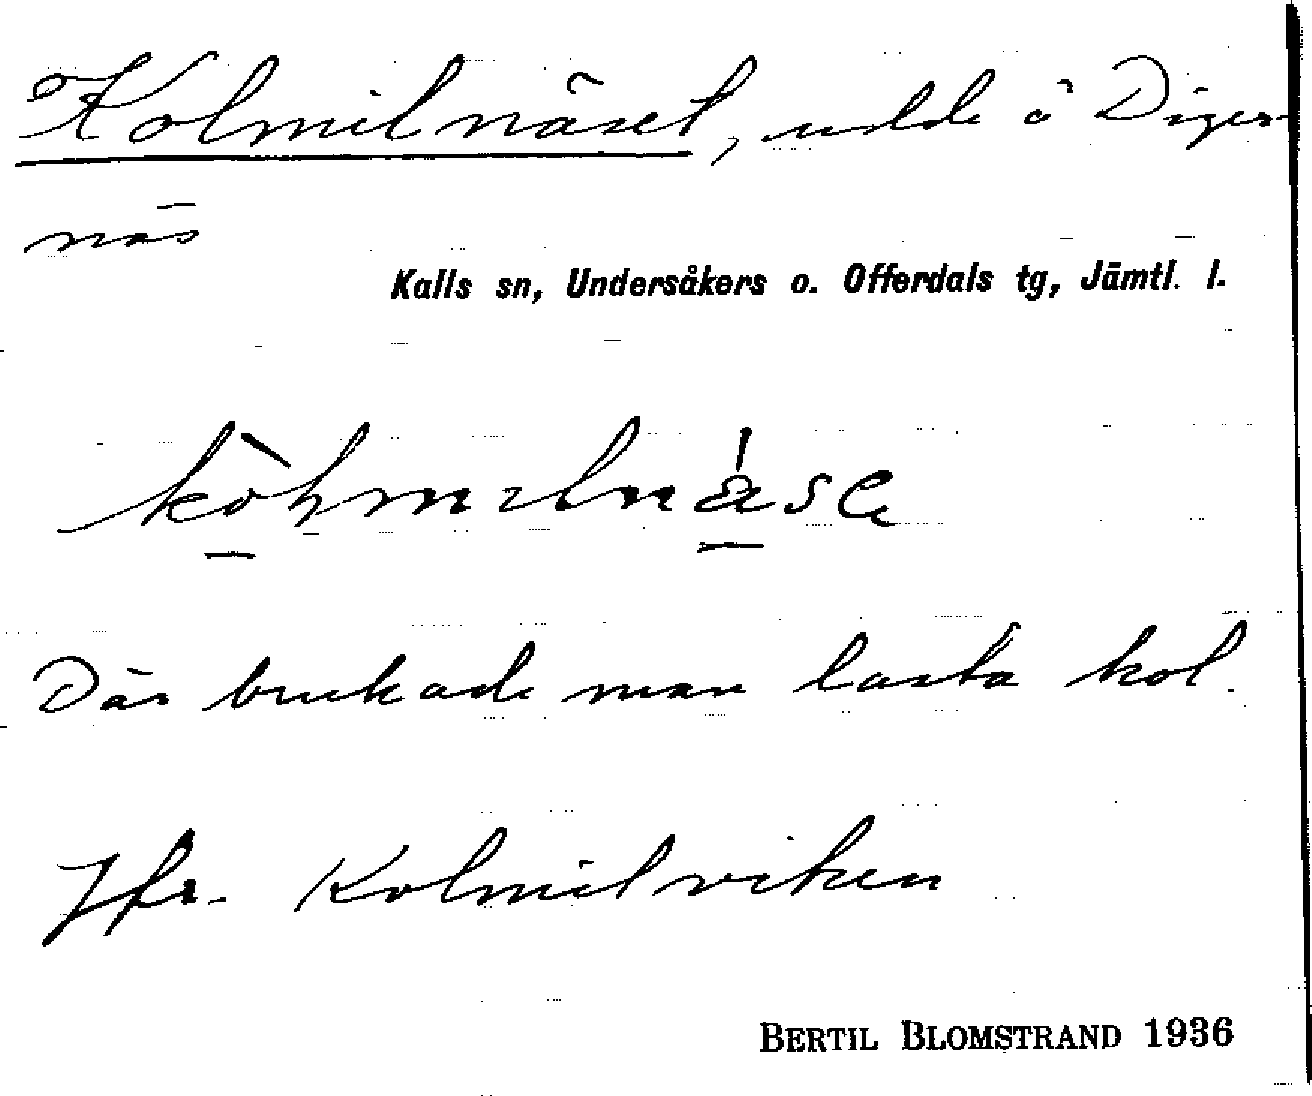 Kolmilnäset, udde å Diger-
näs
Kalls sn, Undersåkers o. Offerdals tg, Jämtl. l.
Där brukade man lasta kol.
Jfr. Kolmilviken
BERTIL BLOMSTRAND 1936